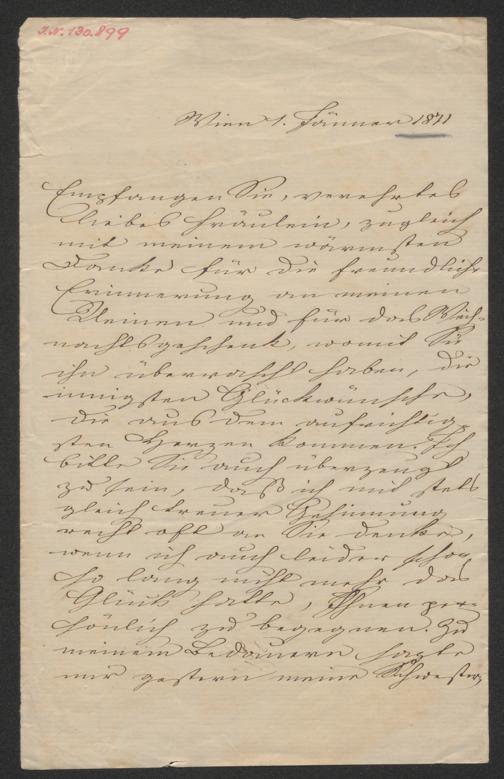 I.N. 130.899
Wien 1. Jänner 1871
Empfangen Sie, verehrtes
liebes Fräulein, zugleich
mit meinem wärmsten
Danke für die freundliche
Erinnerung an meinen
Kleinen und für das Weih-
nachtsgeschenk, womit Sie
ihn überrascht haben, die
innigsten Glückwünsche,
die aus dem aufrichtig-
sten Herzen kommen. Ich
bitte Sie auch überzeugt
zu sein, daß ich mit stets
gleich treuer Gesinnung
recht oft an Sie denke,
wenn ich auch leider schon
so lang nicht mehr das
Glück hatte, Ihnen per-
sönlich zu begegnen. Zu
meinem Bedauern sagte
mir gestern meine Schwester,